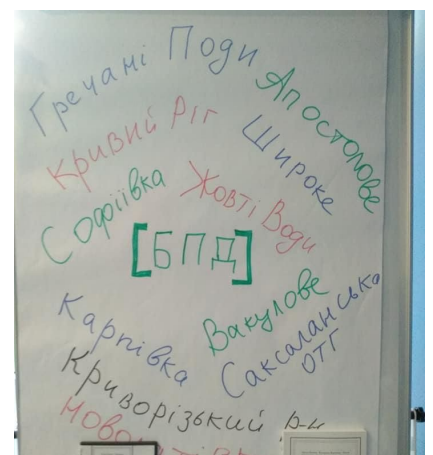 Гречані Поди
Апостолове
Кривий Ріг
Широке
Софіївка
Жовті Води
[БПД]
Вакулове
Карпівка
Саксаганська
ОТГ
Криворізький р-н